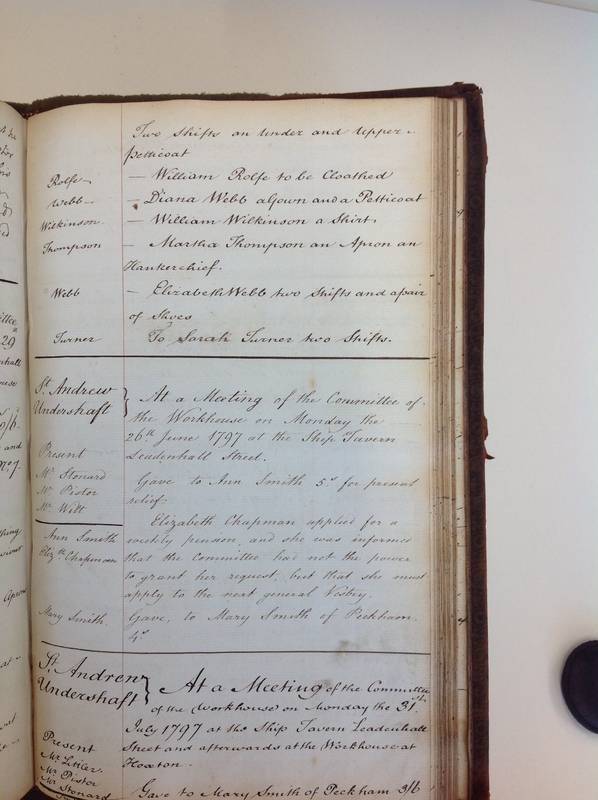 Two Shifts an Under and Upper
Petticoat
Rolfe — William Rolfe to be Cloathed
Webb — Diana Webb a Gown and a Petticoat
Wilkinson — William Wilkinson a Shirt
Thompson — Martha Thompson an Apron an
Hankerchief.
Webb — Elizabeth Webb two Shifts and a pair
of Shoes
Turner To Sarah Turner two Shifts.
St. Andrew
Undershaft
At a Meeting of the Committee of
the Workhouse on Monday the
26th June 1797 at the Ship Tavern
Leadenhall Street.
Present
Mr Stonard
Mr Pistor
Mr Witt
Ann Smith
Gave to Ann Smith 5s. for present
relief
Elizth Chapman
Elizabeth Chapman applied for a
weekly pension, and she was informed
that the Committee had not the power
to grant her request, but that she must
apply to the next general Vestry.
Mary Smith.
Gave, to Mary Smith of Peckham
4s
St. Andrew
Undershaft
At a Meeting of the Committee
of the Workhouse on Monday the 31st
July 1797 at the Ship Tavern Leadenhall
Street and afterwards at the Workhouse at
Hoxton.
Present
Mr Littler
Mr Pistor
Mr Stonard
Gave to Mary Smith of Peckham 3/6